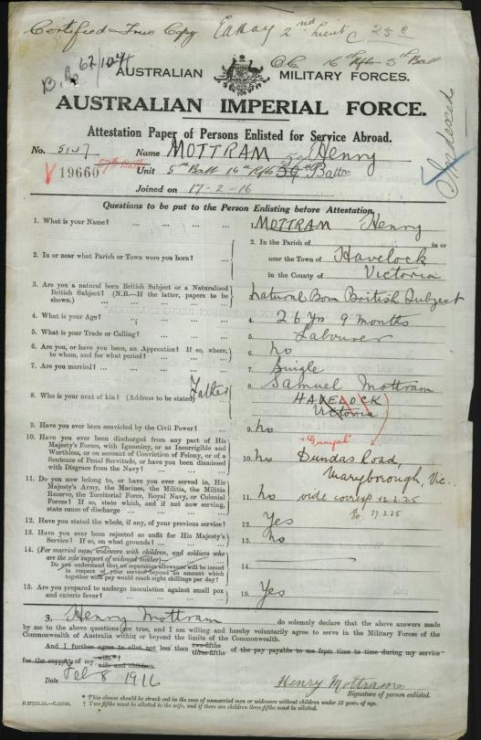 Certified True Copy
2nd Lieut
AUSTRALIAN MILITARY FORCES.
AUSTRALIAN IMPERIAL FORCE.
Indexed
Attestation Paper of Persons Enlisted for Service Abroad.
No. Name MOTTRAM Henry
19660 Unit 5th Batt 16th Rfts
Joined on 17-2-16
Questions to be put to the Person Enlisting before Attestation.
1. What is your Name? ... 1. MOTTRAM Henry
2. In or near what Parish or Town were you born? ... 2. In the Parish of in or
near the Town of Havelock
in the County of Victoria
3. Are you a natural born British Subject or a Naturalized
British Subject? (N.B.—If the latter, papers to be
shown.) Natural Born British Subject
4. What is your Age? ... 4. 26 Yrs 9 months
5. What is your Trade or Calling? ... 5. Labourer
6. Are you, or have you been, an Apprentice? If so, where,
to whom, and for what period? 6. No
7. Are you married? ... 7. Single
8. Who is your next of kin? (Address to be stated) Father 8. Samuel Mottram
HAVELOCK
Victoria
9. Have you ever been convicted by the Civil Power? ... 9. No
10. Have you ever been discharged from any part of His
Majesty's Forces, with Ignominy, or as Incorrigible and
Worthless, or on account of Conviction of Felony, or of a
Sentence of Penal Servitude, or have you been dismissed
with Disgrace from the Navy? 10. No
Dundas Road,
Maryborough, Vic.
11. Do you now belong to, or have you ever served in, His
Majesty's Army, the Marines, the Militia, the Militia
Reserve, the Territorial Force, Royal Navy, or Colonial
Forces? If so, state which, and if not now serving,
state cause of discharge 11. No
17.2.25
12. Have you stated the whole, if any, of your previous service? 12. Yes
13. Have you ever been rejected as unfit for His Majesty's
Service? If so, on what grounds? 13. No
14. (For married men, widowers with children, and soldiers who
are the sole support of widowed mother)—
Do you understand that no separation allowance will be issued
in respect of your service beyond an amount which
together with pay would reach eight shillings per day? 14.
15. Are you prepared to undergo inoculation against small pox
and enteric fever? 15. Yes
I, Henry Mottram do solemnly declare that the above answers made
by me to the above questions are true, and I am willing and hereby voluntarily agree to serve in the Military Forces of the
Commonwealth of Australia within or beyond the limits of the Commonwealth.
And I further agree to allot not less than two-fifths three-fifths of the pay payable to me from time to time during my service
for the support of my wife wife and children
Date Feb 8 1916
Henry Mottram
Signature of person enlisted.
* This clause should be struck out in the case of unmarried men or widowers without children under 18 years of age.
† Two fifths must be allotted to the wife, and if there are children three fifths must be allotted.